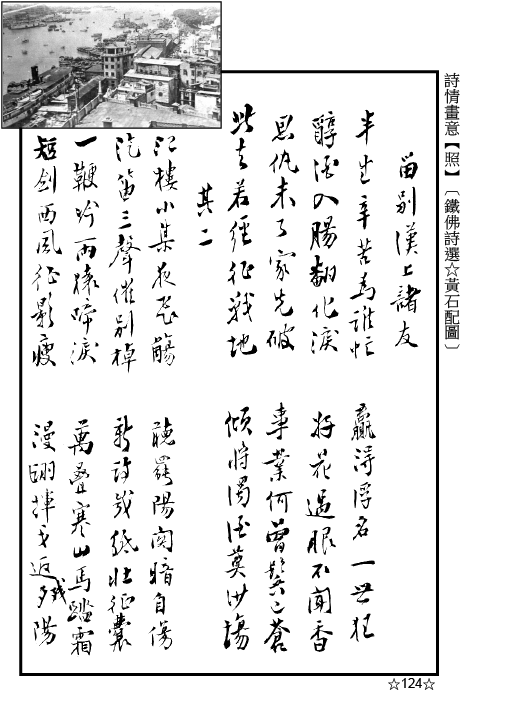 詩情畫意【照】〔鐵佛詩選☆黃石配圖〕
留別漢上諸友
半生辛苦為誰忙 贏得浮名一世狂
醇酒入腸翻化淚 好花過眼不聞香
恩仇未了家先破 事業何曾鬢已蒼
此去若經征戰地 傾將濁酒莫沙場
其二
江樓小集夜飛觴 聽罷陽關暗自傷
汽笛三聲催別棹 新詩幾紙壯征囊
一鞭冷雨猿啼淚 萬疊寒山馬踏霜
短劍西風征影瘦 漫詡揮戈返殘陽
☆124☆